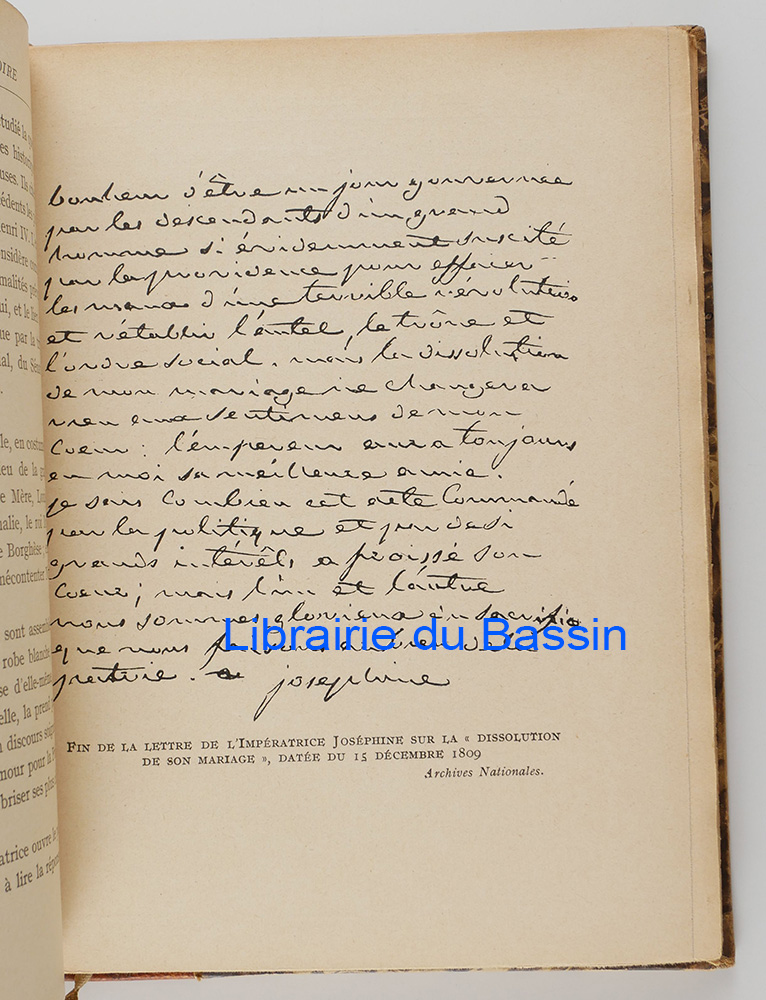 OIRE
tudié la
es histori
uses. Ils
cédents
enri IV.
onsidère
malités
ui, et le
ue par la
ial, du Sén
le, en costum
ieu de la
e Mère,
nalie, le roi
e Borghèse,
mécontenter
sont assem
robe blanche
se d'elle-mêm
elle, la prend
discours
mour pour la
briser ses
atrice ouvre le
à lire la répon
bonheur d'être un jour gouvernée
par les descendants d'un grand
homme si évidemment suscité
par la providence pour effacer
les maux d'une terrible révolution
et rétablir l'autel, le trône et
l'ordre social. mais la dissolution
de mon mariage ne changera
rien aux sentimens de mon
Coeur : l'empereur aura toujours
en moi sa meilleure amie.
je sais Combien cet acte Commandé
par la politique et par de si
grands intérêts a froissé son
Coeur ; mais l'un et l'autre
nous sommes glorieux du sacrifice
que nous faisons au bien de la
patrie. josephine
Librairie du Bassin
FIN DE LA LETTRE DE L'IMPÉRATRICE JOSÉPHINE SUR LA « DISSOLUTION
DE SON MARIAGE », DATÉE DU 15 DÉCEMBRE 1809
Archives Nationales.